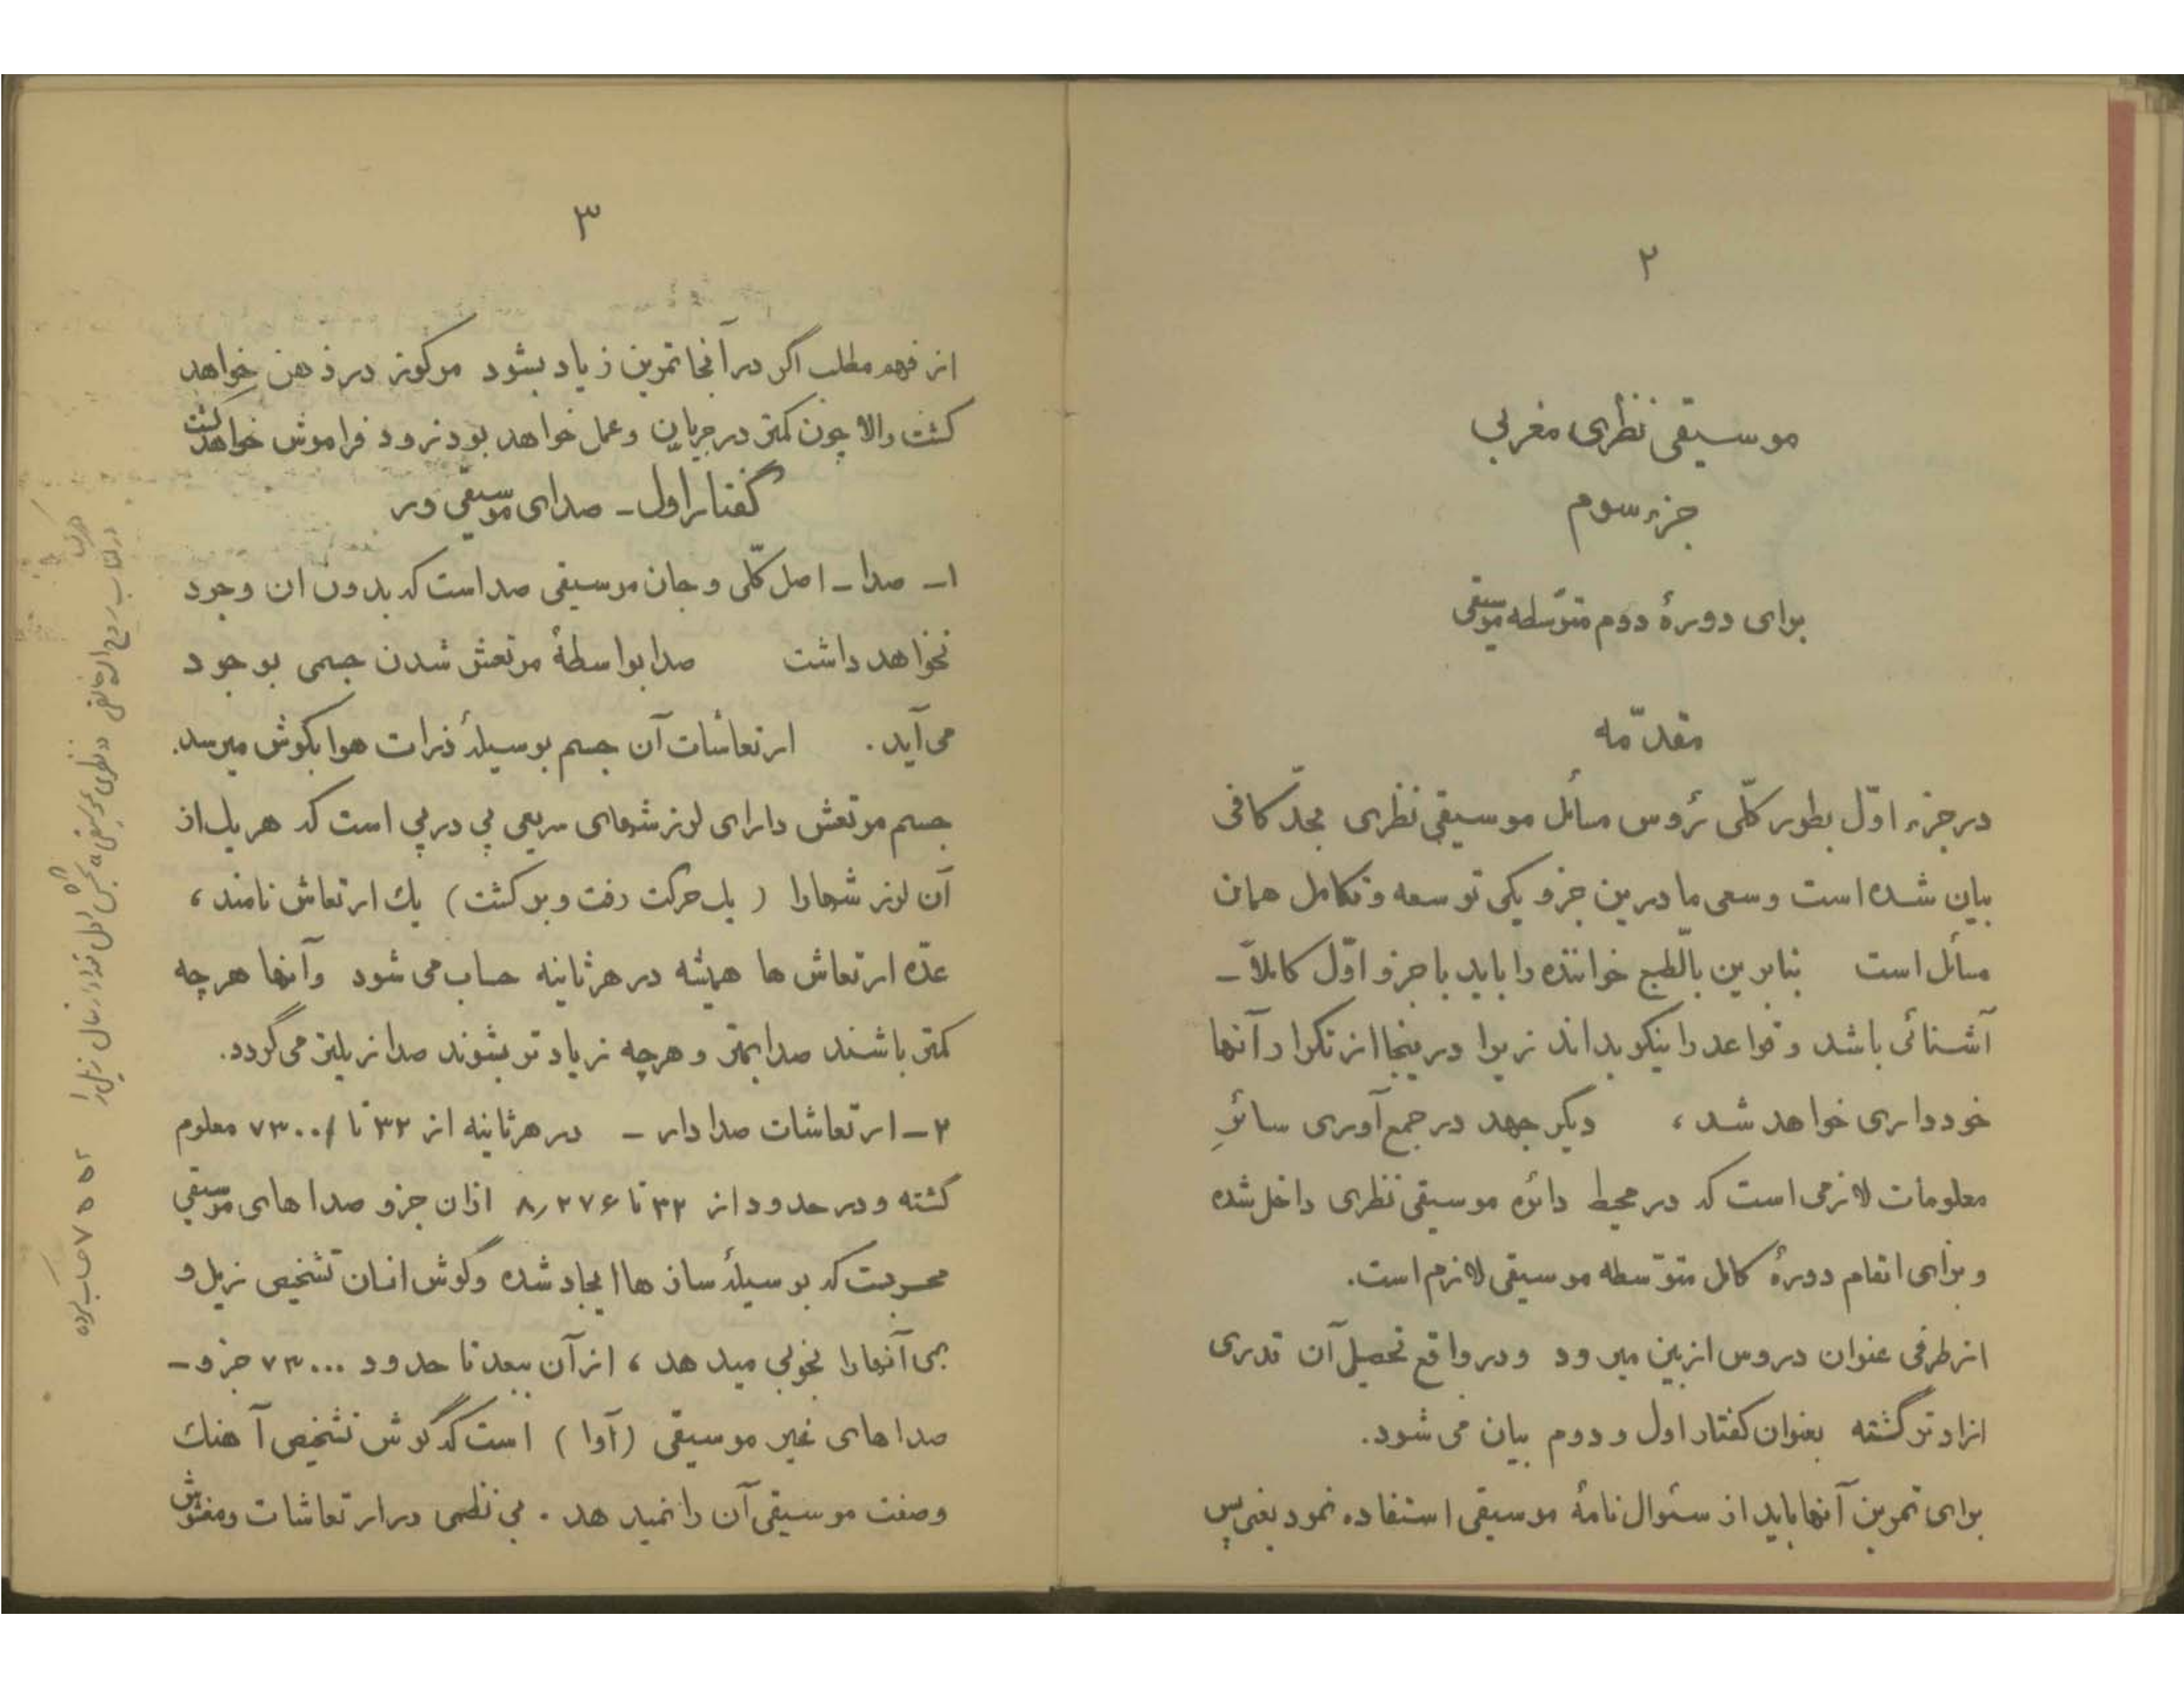 ۲
موسیقی نظری مغربی
جزء سوم
برای دورهٔ دوم متوّسطه موسیقی
مقدّمه
در جزء اوّل بطور کلّی رُوس مسائل موسیقی نظری بحدّ کافی
بیان شده است و سعی ما درین جزو یکی توسعه و تکامل همان
مسائل است بنابرین بالّطبع خواننده را باید با جزو اوّل کاملاً ــ
آشنائی باشد و قواعد را نیکو بداند زیرا درینجا از تکرار آنها
خودداری خواهد شد ، دیگر جهد در جمع آوری سائرِ
معلومات لازمی است که در محیط دائره موسیقی نظری داخل شده
و برای اتمام دورهٔ کامل متوّسطه موسیقی لازم است.
از طرفی عنوان دروس ازبین میرود و در واقع تحصیل آن قدری
ازاد تر گشته بعنوان گفتار اول و دوم بیان می شود.
برای تمرین آنها باید از سئوال نامهٔ موسیقی استفاده نمود یعنی پس
۳
از فهم مطلب اگر در آنجا تمرین زیاد بشود مرکوز در ذهن خواهد
گشت والا چون کمتر در جریان و عمل خواهد بود زود فراموش خواهد گشت
گفتار اول ــ صدای موسیقی ور
۱ــ صدا ــ اصل کلّی و جان موسیقی صداست که بدون ان وجود
نخواهد داشت صدا بواسطهٔ مرتعش شدن جسمی بوجود
می آید . ارتعاشات آن جسم بوسیلهٔ ذرات هوا بگوش میرسد.
جسم مرتعش دارای لرزشهای سریعی پی درپی است که هر یک از
آن لرزشها را ( یک حرکت رفت و برگشت ) یک ارتعاش نامند ،
عدّه ارتعاش ها همیشه در هر ثانیه حساب می شود وآنها هرچه
کمتر باشند صدا بمتر و هرچه زیاد تر بشوند صدا زیلتر می گردد.
۲ــ ارتعاشات صدا دار ــ در هر ثانیه از ۳۲ تا ۷۳۰۰۰ معلوم
گشته و در حدود از ۳۲ تا ۸٫۲۷۶ ازان جزو صدا های موسیقی
محسوبست که بوسیلهٔ ساز ها ایجاد شده و گوش انسان تشخیص زیل و
بمی آنها را بخوبی میدهد ، از آن ببعد تا حدود ۷۳۰۰۰ جزو ــ
صداهای غیر موسیقی (آوا ) است که گوش تشخیص آهنک
وصفت موسیقی آن را نمیدهد . بی نظمی درارتعاشات ومغشوش
در کتاب روح اله خالقی
نظری موسیقی
۷۵۵۲ حساب کرده